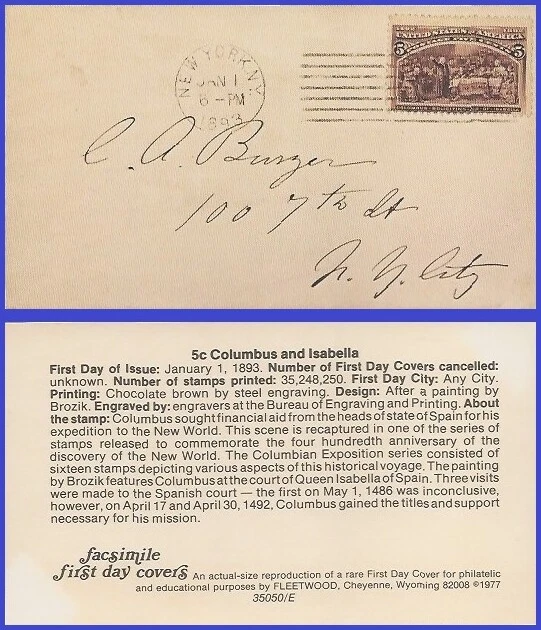 1492 1892
UNITED STATES OF AMERICA
5 5
NEW YORK N.Y.
JAN 1
6 - PM
1893
C. A. Burger
100 7th St
N. Y. City
5c Columbus and Isabella
First Day of Issue: January 1, 1893. Number of First Day Covers cancelled:
unknown. Number of stamps printed: 35,248,250. First Day City: Any City.
Printing: Chocolate brown by steel engraving. Design: After a painting by
Brozik. Engraved by: engravers at the Bureau of Engraving and Printing. About
the stamp: Columbus sought financial aid from the heads of state of Spain for his
expedition to the New World. This scene is recaptured in one of the series of
stamps released to commemorate the four hundredth anniversary of the
discovery of the New World. The Columbian Exposition series consisted of
sixteen stamps depicting various aspects of this historical voyage. The painting
by Brozik features Columbus at the court of Queen Isabella of Spain. Three visits
were made to the Spanish court — the first on May 1, 1486 was inconclusive,
however, on April 17 and April 30, 1492, Columbus gained the titles and support
necessary for his mission.
facsimile
first day covers An actual-size reproduction of a rare First Day Cover for philatelic
and educational purposes by FLEETWOOD, Cheyenne, Wyoming 82008 ©1977
35050/E